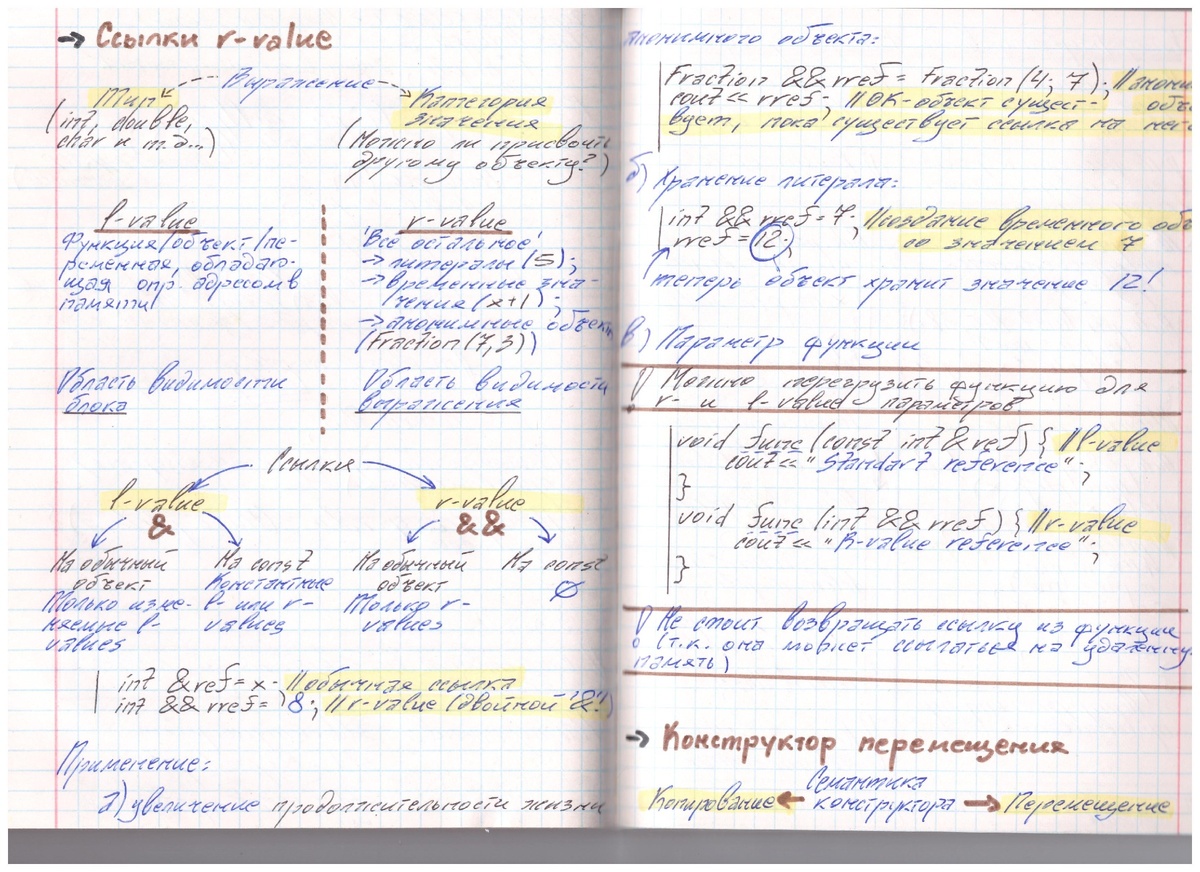 → Ссылки r-value
Выражение
Тип
(int, double,
char и т.д...)
Категория
значения
(Можно ли присвоить
другому объекту?)
l-value
Функция/объект/пе-
ременная, обладаю-
щая опр. адресом в
памяти
Область видимости
блока
r-value
'Все остальное'
→ литералы (5);
→ временные зна-
чения (x+1);
→ анонимные объект
(Fraction(7,3))
Область видимости
выражения
Ссылки
l-value
&
r-value
&&
На обычный
объект
Только изме-
няемые l-
values
На const
Константные
l- или r-
values
На обычный
объект
Только r-
values
На const
∅
int &ref = x; //обычная ссылка
int && rref = 8; //r-value (двойной '&'!)
Применение:
а) увеличение продолжительности жизни
анонимного объекта:
Fraction && rref = Fraction(4; 7); //анони
cout << rref; //ОК-объект сущест- объе
вует, пока существует ссылка на него
б) Хранение литерала:
int && rref = 7; //создание временного объ
со значением 7
rref = 12;
теперь объект хранит значение 12!
в) Параметр функции
! Можно перегрузить функцию для
r- и l-value параметров.
void func (const int & ref) { //l-value
cout << "Standart reference";
}
void func (int && rref) { //r-value
cout << "R-value reference";
}
! Не стоит возвращать ссылку из функции
(т.к. она может ссылаться на удаленну
память)
→ Конструктор перемещения
Семантика
Копирование ← конструктора → Перемещение